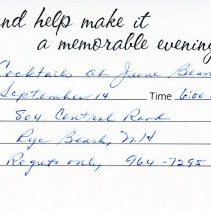 and help make it
a memorable evening
Cocktails at June Bean
September 14 Time 6:00
804 Central Road
Rye Beach, N.H
Regrets only, 964-7295